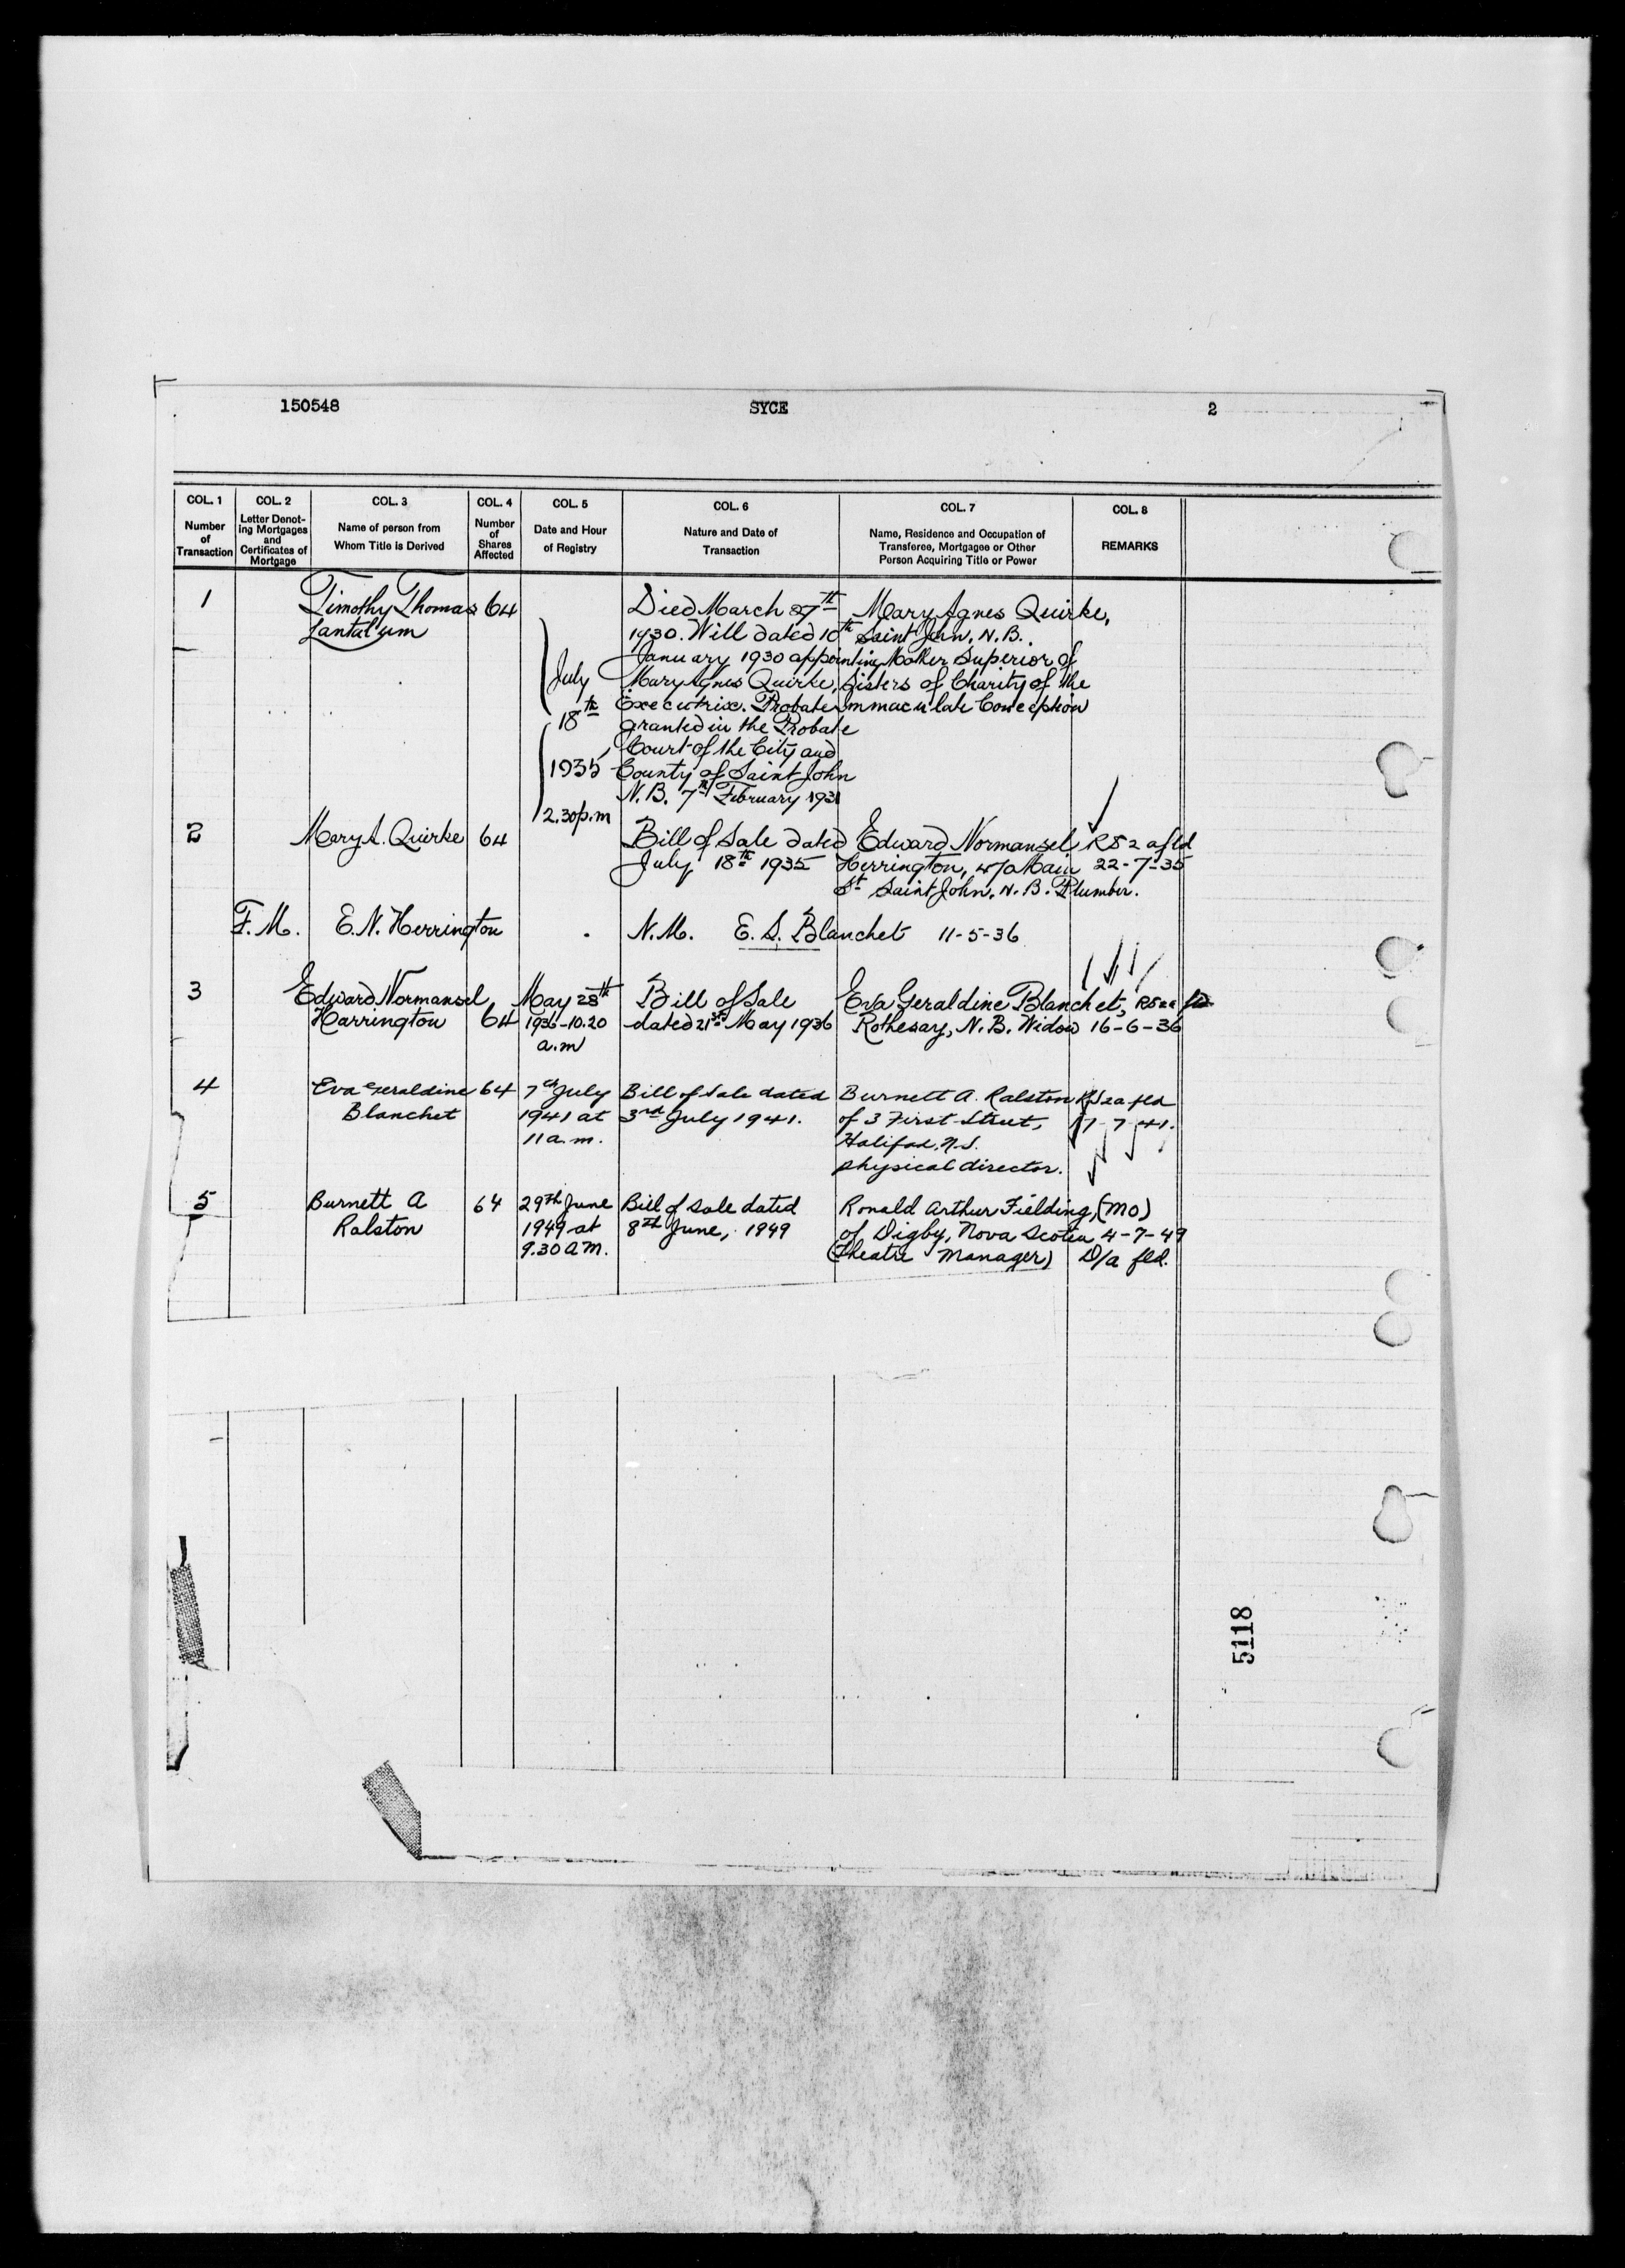 150548 SYCE 2
COL. 1 COL. 2 COL. 3 COL. 4 COL. 5 COL. 6 COL. 7 COL. 8
Number of Transaction
Letter Denot-ing Mortgages and Certificates of Mortgage
Name of person from Whom Title is Derived
Number of Shares Affected
Date and Hour of Registry
Nature and Date of Transaction
Name, Residence and Occupation of Transferee, Mortgagee or Other Person Acquiring Title or Power
REMARKS
1
Timothy Thomas 64
Lantalum
July
18th
1935
2.30p.m
Died March 27th
1930. Will dated 10th
January 1930 appointing
Mary Agnes Quirke,
Executrix. Probate
granted in the Probate
Court of the City and
County of Saint John
N.B. 7th February 1931
Mary Agnes Quirke,
Saint John, N.B.
Mother Superior of
Sisters of Charity of the
Immaculate Conception
2
Mary A. Quirke 64
Bill of Sale dated
July 18th 1935
Edward Normansel
Herrington, 470 Main
St Saint John, N.B. Plumber.
R52a fld
22-7-35
F.M. E.N. Herrington N.M. E.S. Blanchet 11-5-36
3
Edward Normansel
Harrington 64
May 28th
1936-10.20
a.m
Bill of Sale
dated 21st May 1936
Eva Geraldine Blanchet,
Rothesay, N.B. Widow
R52a fld
16-6-36
4
Eva Geraldine 64
Blanchet
7th July
1941 at
11 a.m.
Bill of Sale dated
3rd July 1941.
Burnett A. Ralston
of 3 First Street,
Halifax, N.S.
physical director.
R52a fld
17-7-41.
5
Burnett A 64
Ralston
29th June
1949 at
9.30 A.M.
Bill of Sale dated
8th June, 1949
Ronald Arthur Fielding,
of Digby, Nova Scotia
(Theatre Manager)
(MO)
4-7-49
D/a fld.
5118